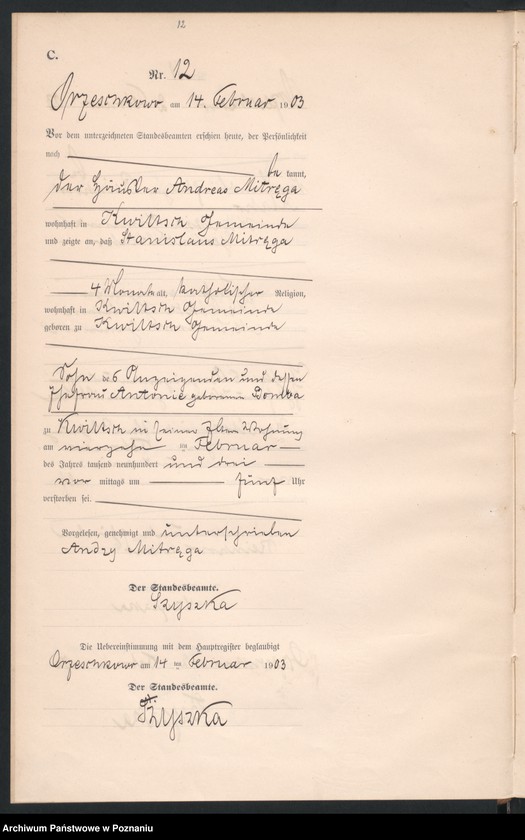 12
C.
Nr. 12
Orzeschkowo am 14. Februar 1903
Vor dem unterzeichneten Standesbeamten erschien heute, der Persönlichkeit
nach be kannt,
der Häusler Andreas Mitręga
wohnhaft in Kwiltsch Gemeinde
und zeigte an, daß Stanislaus Mitręga
4 Monate alt, katholischer Religion,
wohnhaft in Kwiltsch Gemeinde
geboren zu Kwiltsch Gemeinde
Sohn des Anzeigenden und dessen
Ehefrau Antonie geborenen Domba
zu Kwiltsch in seiner Wohnung
am vierzehn ten Februar
des Jahres tausend neunhundert und drei
vor mittags um fünf Uhr
verstorben sei.
Vorgelesen, genehmigt und unterschrieben
Andrzy Mitręga
Der Standesbeamte.
Szyszka
Die Uebereinstimmung mit dem Hauptregister beglaubigt
Orzeschkowo am 14 ten Februar 1903
Der Standesbeamte.
Szyszka
Archiwum Państwowe w Poznaniu